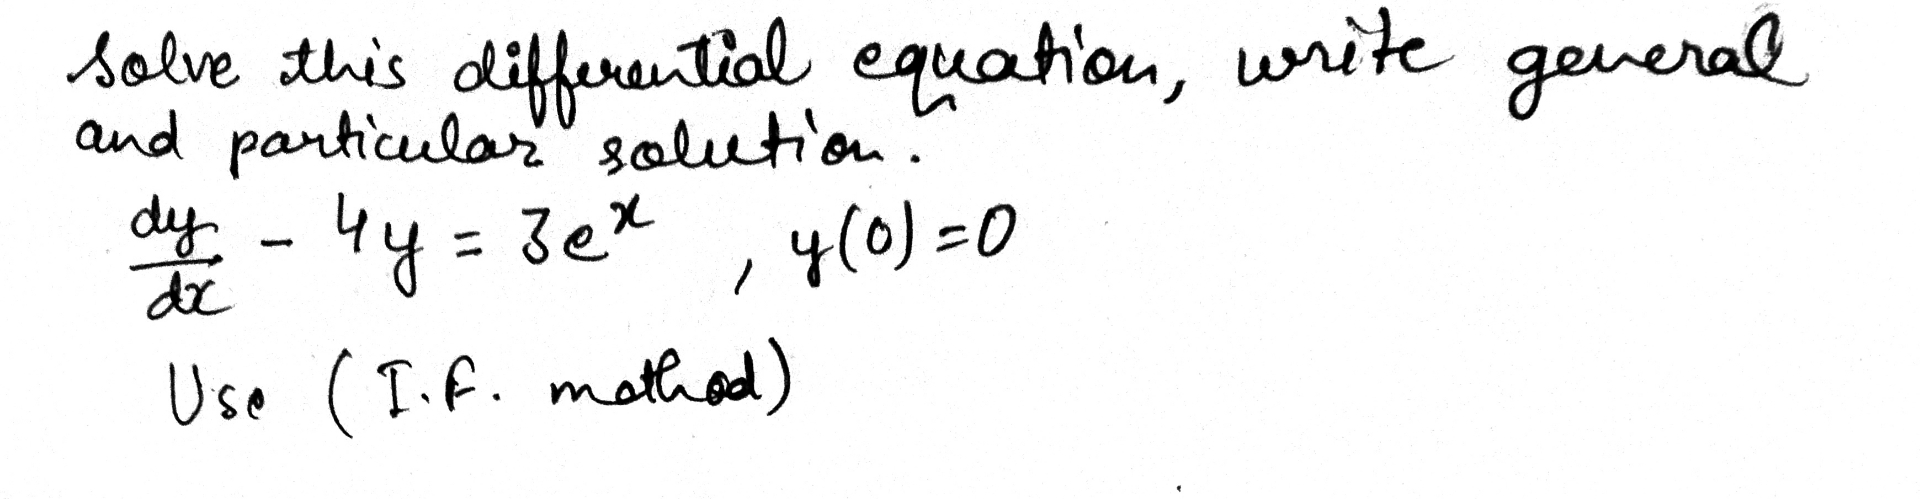 Solve this differential equation, write general
and particular solution.
dy/dx - 4y = 3e^x , y(0)=0
Use (I.F. method)